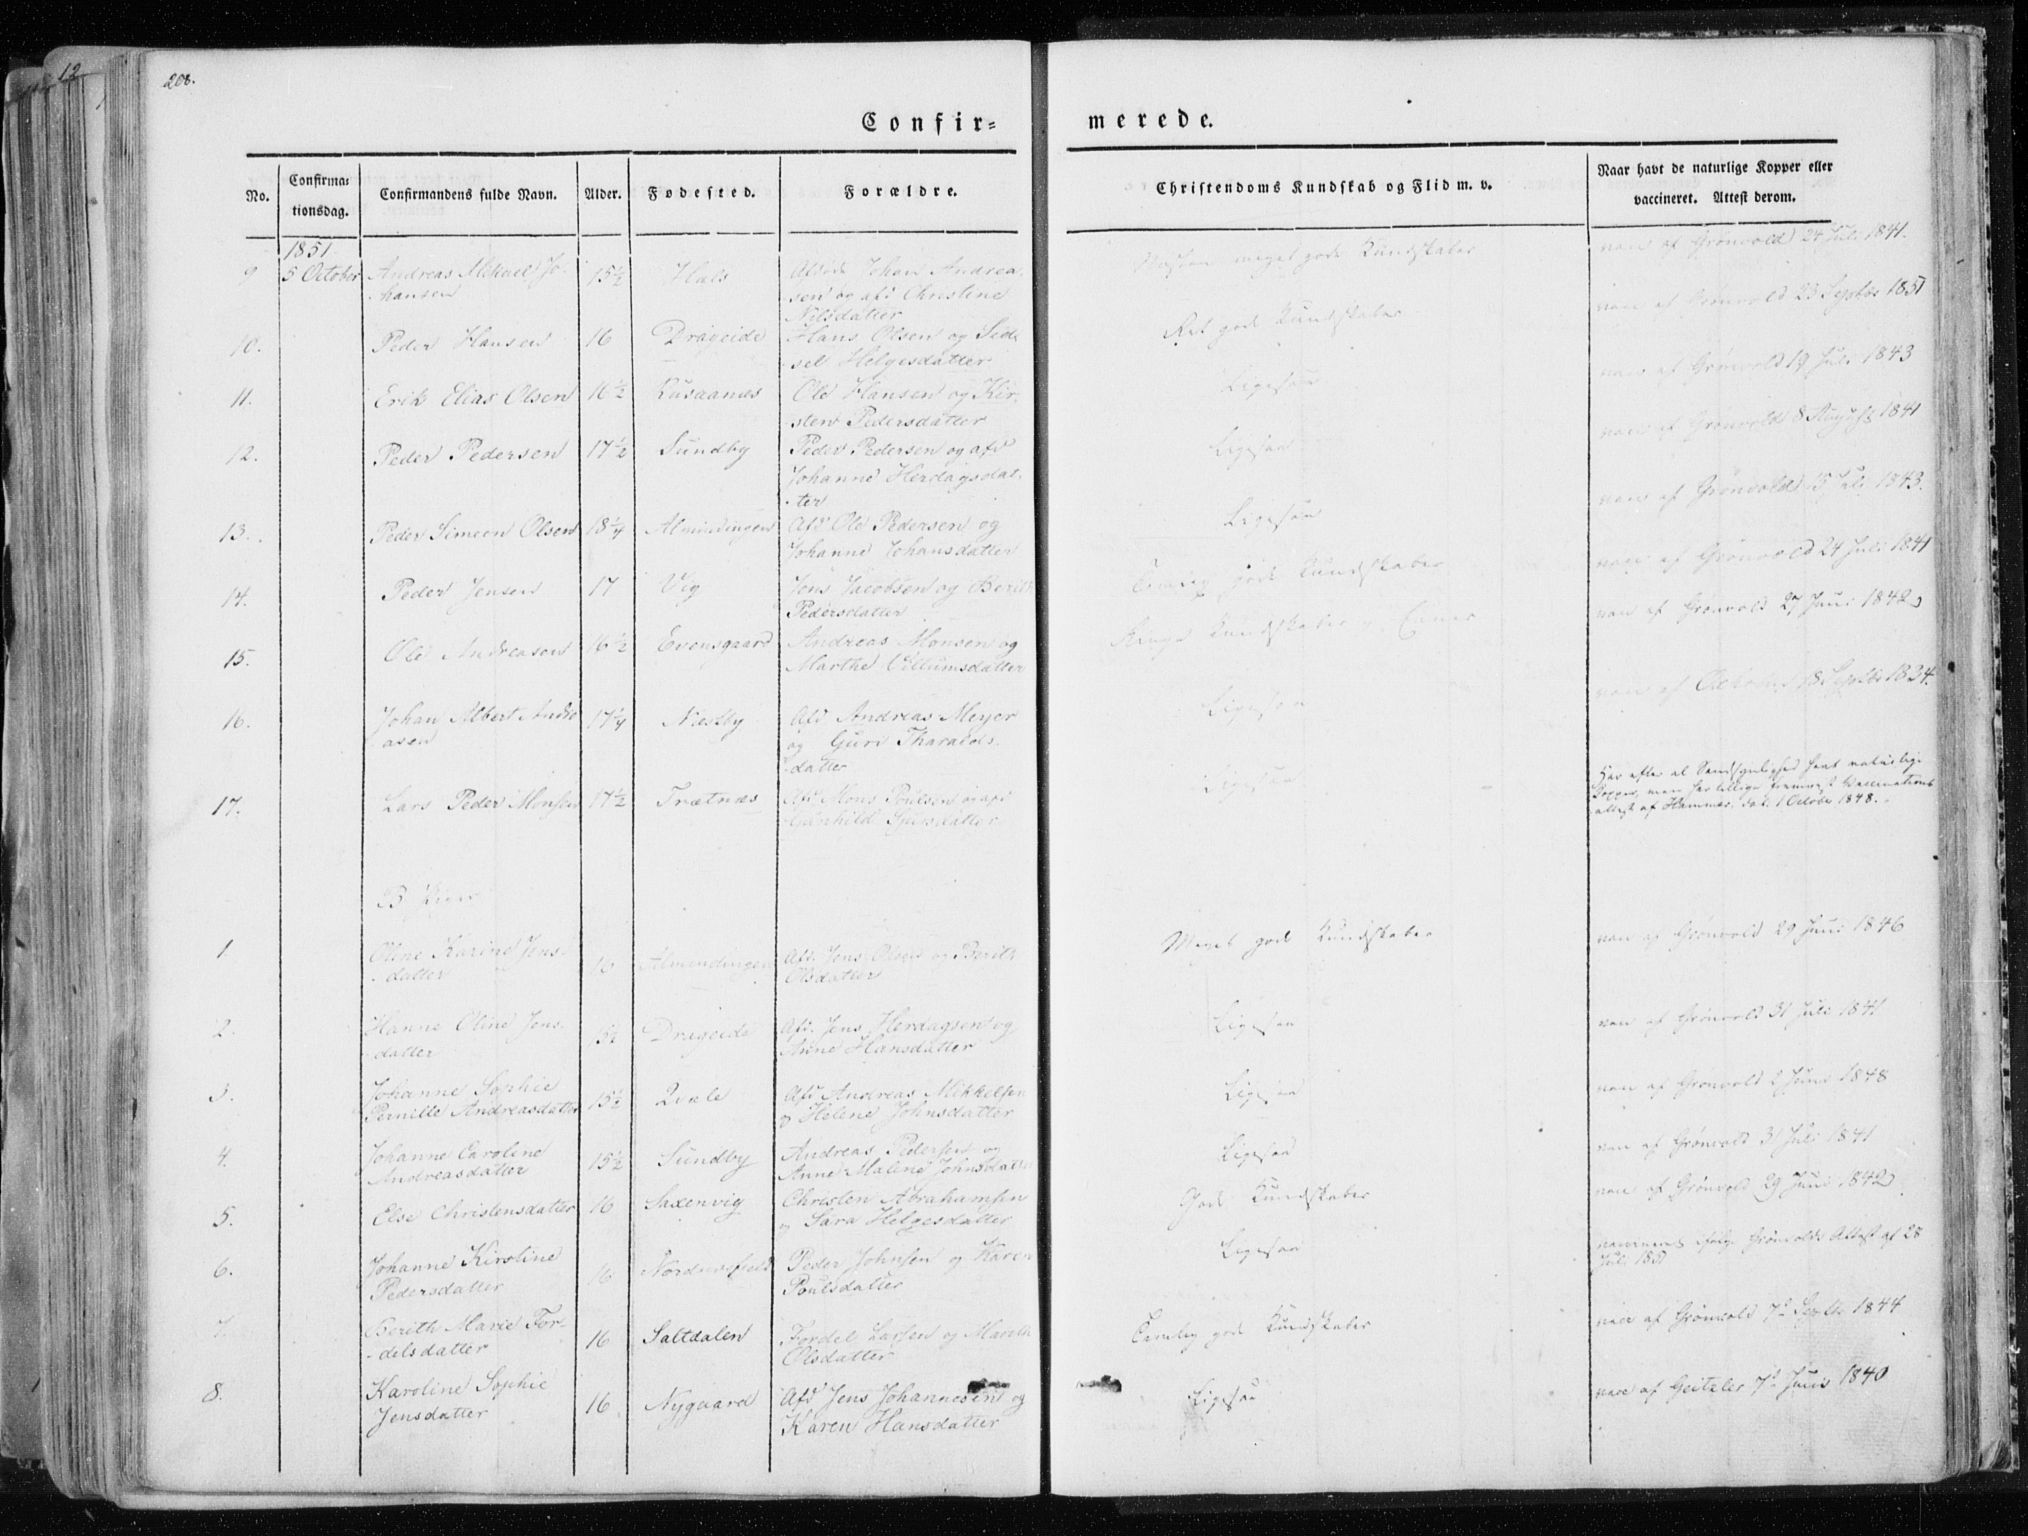 12
208.
Confir=
merede.
No.
Confirma=
tionsdag.
Confirmandens fulde Navn.
Alder.
Fodested.
Forældre.
Christendoms Kundskab og Flid m. v.
Naar havt de naturlige Kopper eller
vaccineret. Attest derom.
1851
9 5 October Andreas Mikael Jo- 15½ Hals Afdøde Johan Andrea-
hansen sen og afd Christine
Nilsdatter
meget gode Kundskaber vacc af Grönvold 24 Juli 1841.
10. Peder Hansen 16 Drageide Hans Olsen og Sid-
sel Helgesdatter
Ret gode Kundskaber vacc af Grönvold 23 Septbr 1851
11. Erik Elias Olsen 16½ Rusaanes Ole Hansen og Kir-
sten Pedersdatter
Ligesaa vacc af Grönvold 19 Juli 1843
12. Peder Pedersen 17½ Sundby Peder Pedersen og afd
Johanne Herdagsdat-
ter
Ligesaa vacc af Grönvold 8 August 1841
13. Peder Simeon Olsen 18¼ Almindingen Afd Ole Pedersen og
Johanne Johansdatter
Ligesaa vacc af Grönvold 15 Juli 1843.
14. Peder Jensen 17 Vig Jens Jacobsen og Berith
Pedersdatter
Temlig gode Kundskaber vacc af Grönvold 24 Juli 1841
15. Ole Andreasen 16½ Evensgaard Andreas Monsen og
Marthe Villumsdatter
Kundskaber og Evner vacc af Grönvold 27 Juni 1842
16. Johan Albert Andre 17¼ Næstby Afd Andreas Meyer
asen og Guri Tharalds-
datter
Ligesaa vacc af 18 Septbr 1834.
17. Lars Peder Monsen 17½ Trætnæs Afd Mons Poulsen og afd
Gunhild Sjursdatter
Ligesaa
Har efter al Sandsynlighed havt naturlige
Kopper, men har tillige fremvist Vaccinations
attest af Hammer, dat. 1 October 1848.
B. Piger
1. Oline Karine Jens- 16 Almindingen Afd. Jens Olsen og Berith
datter Olsdatter
Meget gode Kundskaber vacc af Grönvold 29 Juni 1846
2. Hanne Oline Jens- 15½ Drageide Afd. Jens Herdagsen og
datter Anne Hansdatter
Ligesaa vacc af Grönvold 31 Juli 1841
3. Johanne Sophie
Pernille Andreasdatter 15½ Qvæle Afd Andreas Mikkelsen
og Helene Johnsdatter
Ligesaa vacc af Grönvold 2 Juni 1848
4. Johanne Caroline
Andreasdatter 15½ Sundby Andreas Pedersen og
Anne Malene Johnsdatter
Ligesaa vacc af Grönvold 31 Juli 1841
5. Else Christensdatter 16 Saxenvig Christen Abrahamsen
og Sara Helgesdatter
Gode Kundskaber vacc af Grönvold 29 Juni 1842
6. Johanne Kirstine
Pedersdatter 16 Peder Johnsen og Karen
Poulsdatter
Ligesaa vaccineret ifølge Grönvolds Attest af 28
Juli 1851
7. Berith Marie For-
delsdatter 16 Saltdalen Fordel Larsen og Marith
Olsdatter
Temlig gode Kundskaber vacc af Grönvold 7d Septbr 1844
8. Karoline Sophie
Jensdatter 16 Nygaard Afd Jens Johannesen og
Karen Hansdatter
Ligesaa vacc af Geitzler 7d Juni 1840